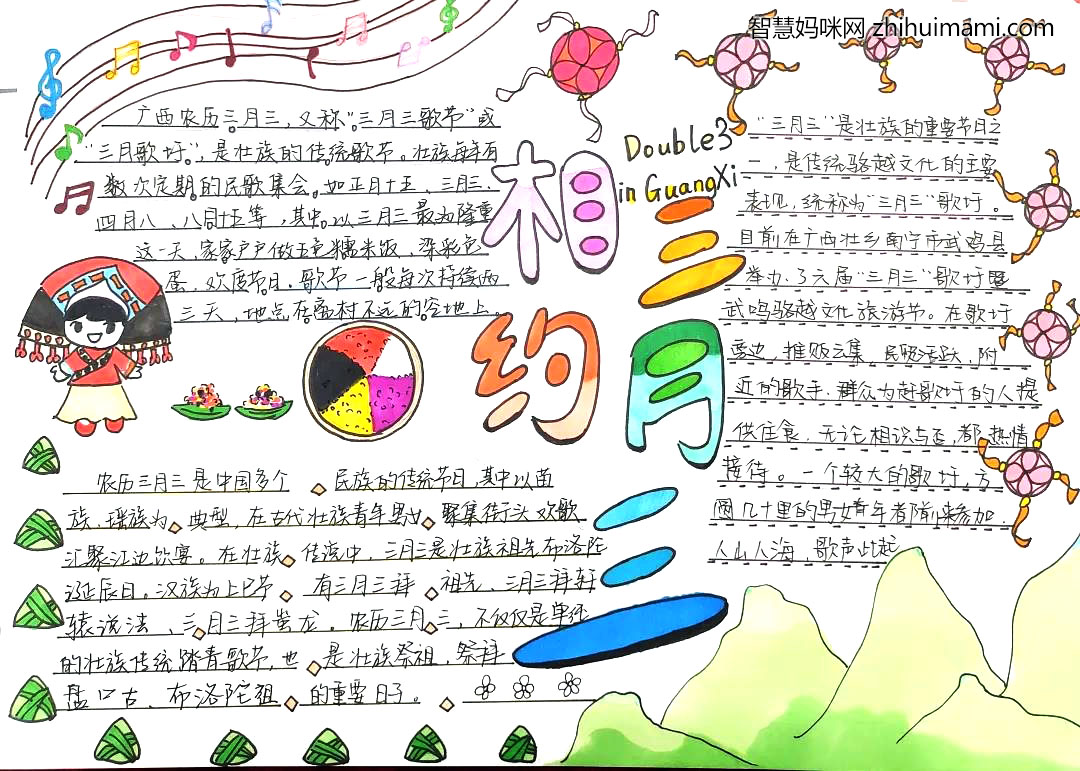 智慧妈咪网 zhihuimami.com
广西农历三月三，又称“三月三歌节”或
“三月歌圩”，是壮族的传统歌节。壮族每年有
数次定期的民歌集会。如正月十五、三月三、
四月八、八月十五等，其中以三月三最为隆重
这一天，家家户户做五色糯米饭，染彩色
蛋，欢度节日。歌节一般每次持续两
三天，地点在离村不远的空地上。
相约
三月三
Double3
in GuangXi
“三月三”是壮族的重要节日之
一，是传统骆越文化的主要
表现，统称为“三月三”歌圩。
目前在广西壮乡南宁市武鸣县
举办了六届“三月三”歌圩暨
武鸣骆越文化旅游节。在歌圩
旁边，摊贩云集，民贸活跃，附
近的歌手、群众为赶歌圩的人提
供住食，无论相识与否，都热情
接待。一个较大的歌圩，方
圆几十里的男女青年都前来参加，
人山人海，歌声此起
农历三月三是中国多个民族的传统节日，其中以苗
族、瑶族为典型，在古代壮族青年男女聚集街头欢歌
汇聚江边饮宴。在壮族传说中，三月三是壮族祖先布洛陀
诞辰日。汉族为上巳节有三月三拜祖先，三月三拜轩
辕说法，三月三拜蚩龙。农历三月三，不仅仅是单纯
的壮族传统踏青歌节，也是壮族祭祖，祭拜
盘古、布洛陀祖的重要日子。